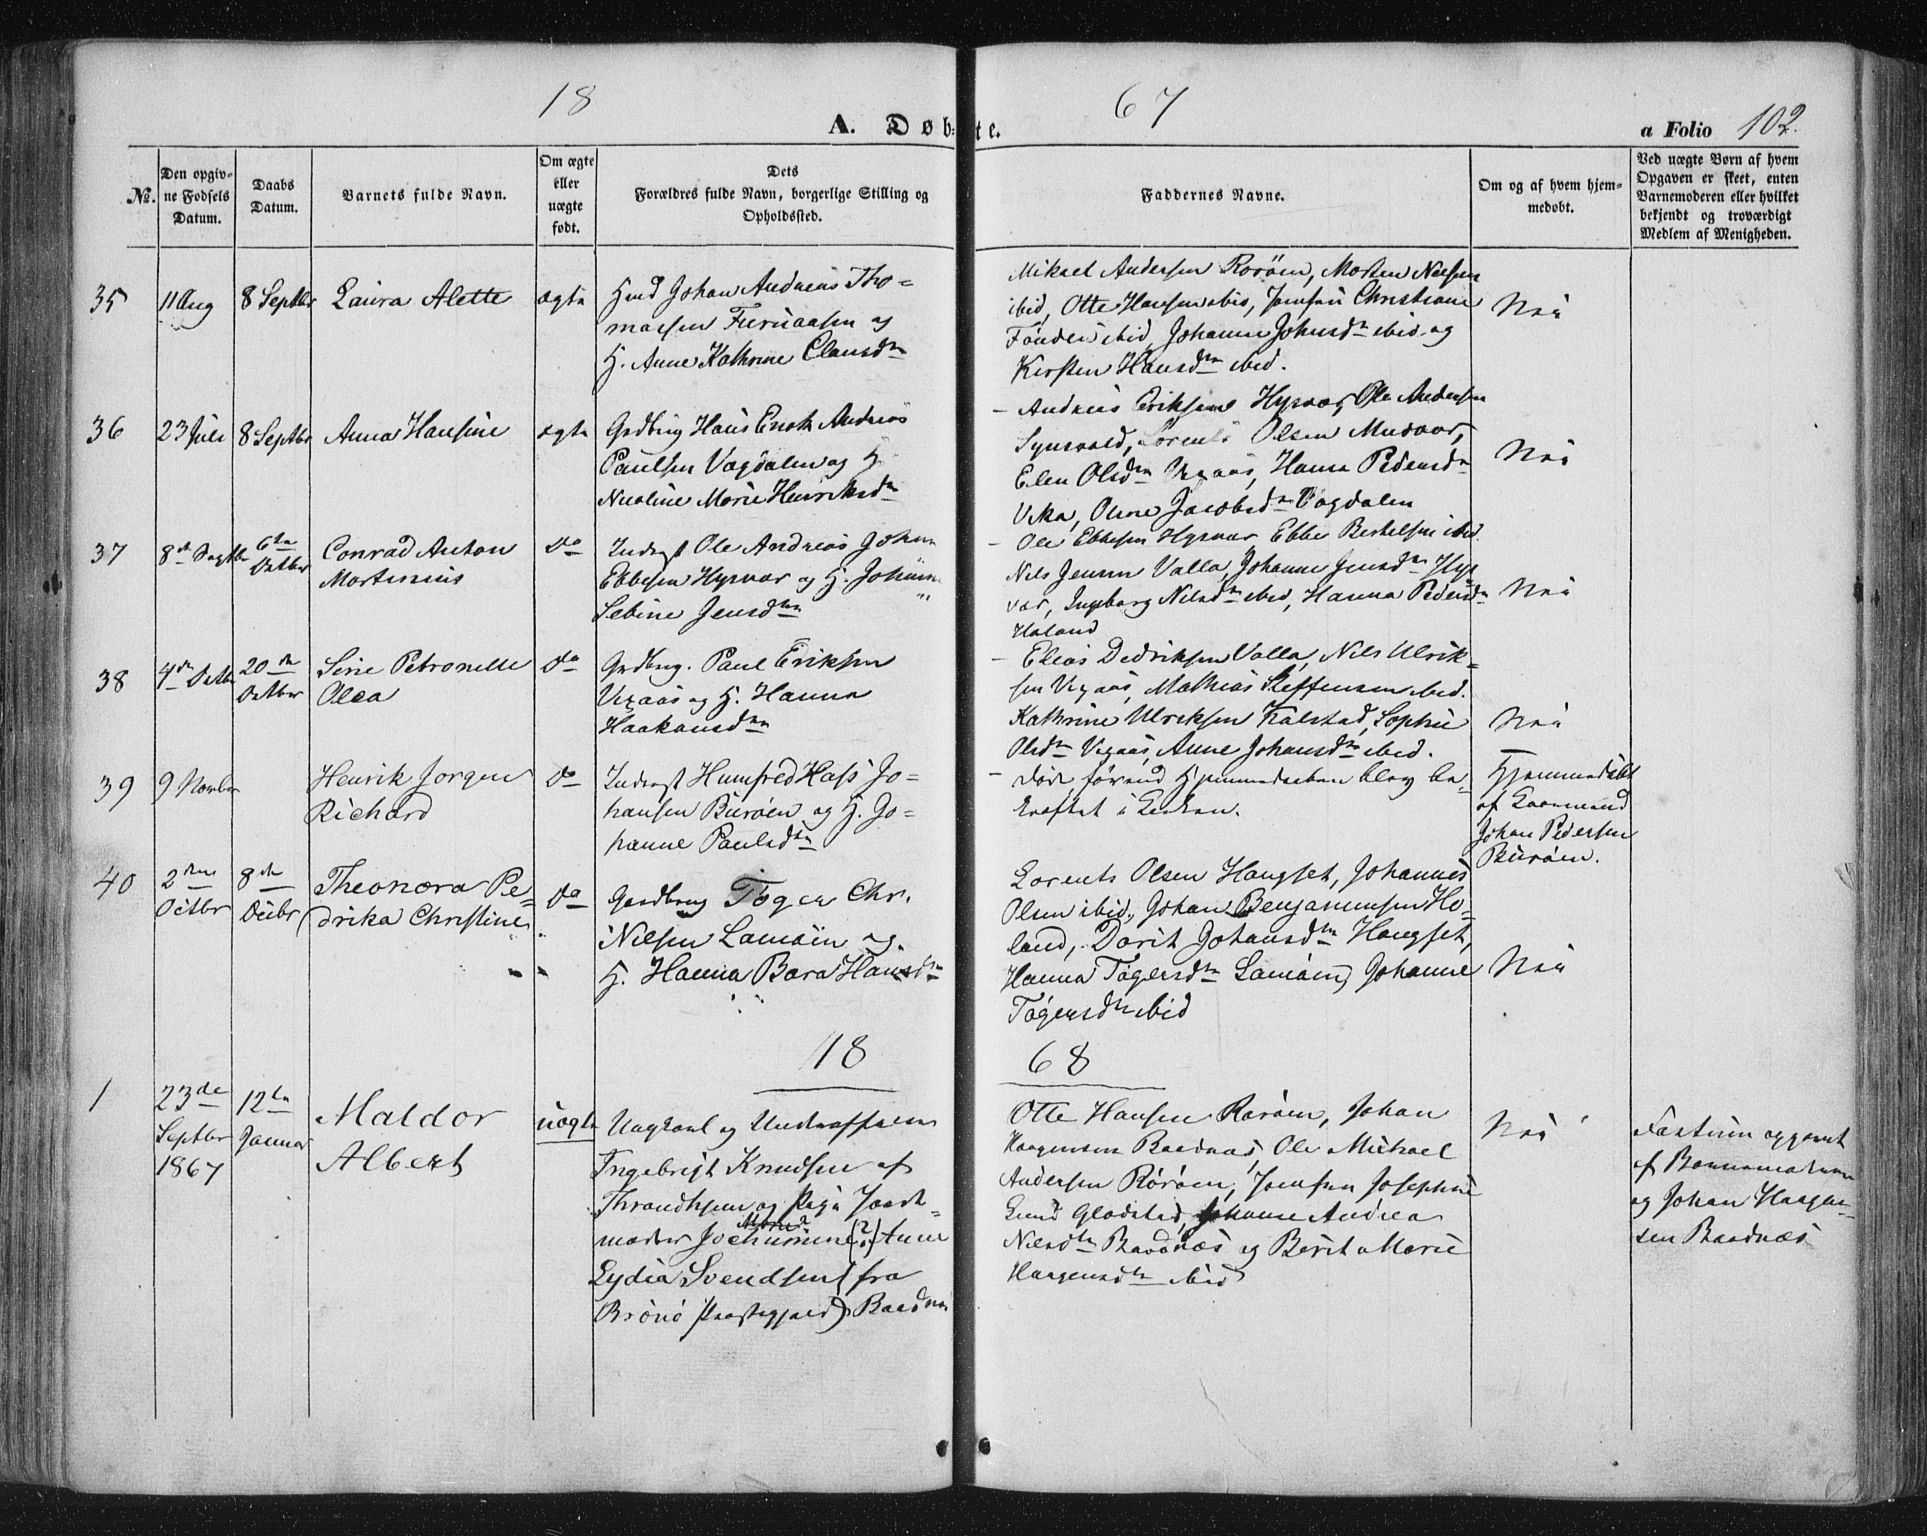 18 67
A. Døbte.
a Folio 102.
No.
Den opgiv-
ne Fødsels
Datum.
Daabs
Datum.
Barnets fulde Navn.
Om ægte
eller
uægte
født.
Dets
Forældres fulde Navn, borgerlige Stilling og
Opholdssted.
Faddernes Navne.
Om og af hvem hjem-
medøbt.
Ved uægte Børn af hvem
Opgaven er skeet, enten
Barnemoderen eller hvilket
bekjendt og troværdigt
Medlem af Menigheden.
35
11 Aug
8 Septbr
Laura Alette
ægte
Hmd Johan Andreas Tho-
massen Furuaasen og
H. Anne Kathrine Clausdtr
Mikael Andersen Rørøen, Morten Nielsen
ibid, Otte Hansen ibid, Jomfru Christiane
ibid, Johanna Johnsdtr ibid og
Kirsten Hansdtr ibid.
Nei
36
23 Juli
8 Septbr
Anna Hansine
ægte
Gdbrug Hans Enok Andreas
Paulsen Vagdalen og H.
Nicoline Marie Henriksdtr
- Andreas Eriksen Hysvær, Ole Andersen
Olsen Mudvær,
Elen Olsdtr Vegaas, Hanna Pedersdtr
Vika, Oline Jacobsdtr Vagdalen
Nei
37
8de Septbr
6te
Octbr
Conrad Anton
Martinius
do
Inderst Ole Andreas Johan
Ebbesen Hysvær og H. Johanna
Sebine Jensdtr
- Ole Ebbesen Hysvær Ebbe Bertelsen ibid.
Nils Jensen Valla, Johanne Jensdtr Hys
vær, Ingeborg Nilsdtr ibid, Hanna Pedersdtr
Holand
Nei
38
4de Octbr
20de
Octbr
Sine Petronelle
Olea
do
Gdbrug. Paul Eriksen
Vegaas og H. Hanna
Haakonsdtr
- Elias Dedriksen Valla, Nils Ulrik-
sen Vegaas, Mathias Steffensen ibid.
Kathrine Ulriksen Kalstad, Sophie
Olsdtr Vegaas, Anne Johansdtr ibid.
Nei
39
9 Novbr
Henrik Jørgen
Richard
do
Inderst Humfred Hass Jo-
hansen Burøen og H. Jo-
hanne Paulsdtr
- Døde førend Hjemmedaaben blev be-
kræftet i Kirken.
Hjemmedøbt
af Gaarmand
Johan Pedersen
Burøen.
40
2den
Octbr
8de
Decbr
Theonora Pe-
drika Christine
do
Gaardbrug Tøger Chr.
Nilsen Lamøien og
H. Hanna Bara Hansdtr
Lorents Olsen Hongset, Johannes
Olsen ibid, Johan Benjaminsen Ho-
land, Dorit Johansdtr Hongset,
Hanna Tøgersdtr Lamøien, Johanne
Tøgersdtr ibid
Nei
18 68
1
23de
Septbr
1867
12te
Januar
Haldor
Albert
uægte
Ungkarl og Underofficer
Ingebrigt Knudsen af
Throndhjem og Pige
Jochumine (?) Anne
Lydia Svendsen (fra
Brønø Præstegjæld) Baadnæs
Otte Hansen Rørøen, Johan
Haagensen Baadnæs, Ole Michael
Andersen Rørøen, Jomfru Josephine
Lund Gladstad, Johanne Andrea
Nilsdtr Baadnæs og Berit Marie
Haagensdtr ibid
Nei
Factum opgivet
af Barnemoderen
og Johan Haagen-
sen Baadnæs